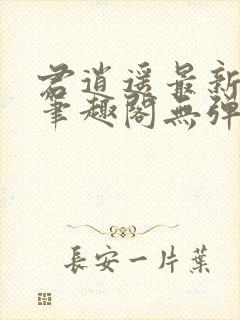 君逍遥最新
笔趣阁无弹
長安一片葉